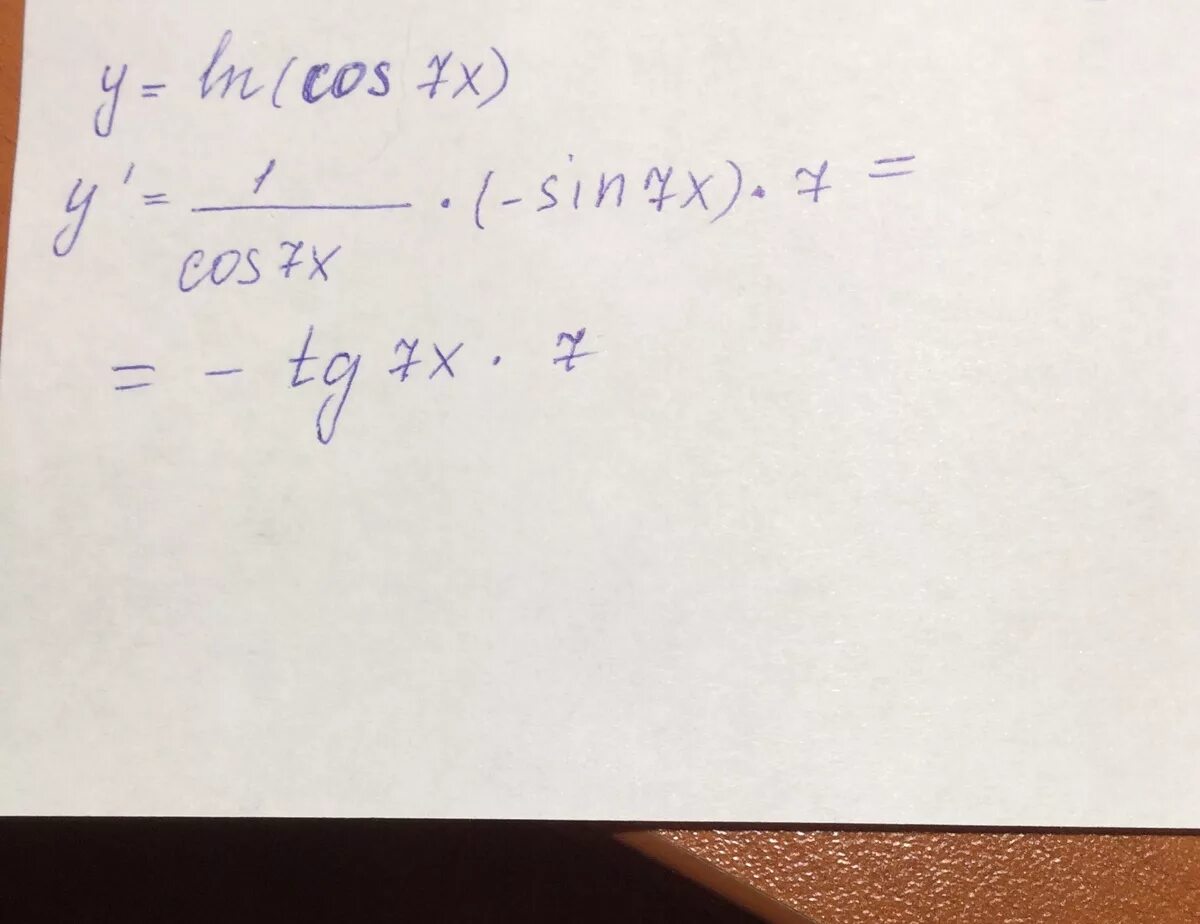 y = ln(cos 7x)
y' = 1/cos7x · (-sin7x) · 7 =
= - tg 7x · 7